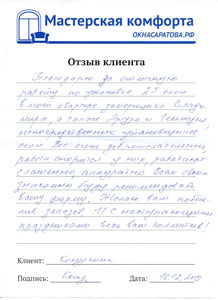 Мастерская комфорта
ОКНАСАРАТОВА.РФ
Отзыв клиента
Благодарю за отличную
работу по установке 2х окон
в моей квартире замерщика Влади-
мира, а также
непосредственных установщиков
окон. Все очень доброжелательны,
работа спорится у них, работают
слаженно, аккуратно. Всем своим
знакомым буду рекомендовать
вашу фирму. Желаю вам побольше
заказов. И с наступающими
праздниками весь ваш коллектив!
Клиент:
Подпись: Дата: